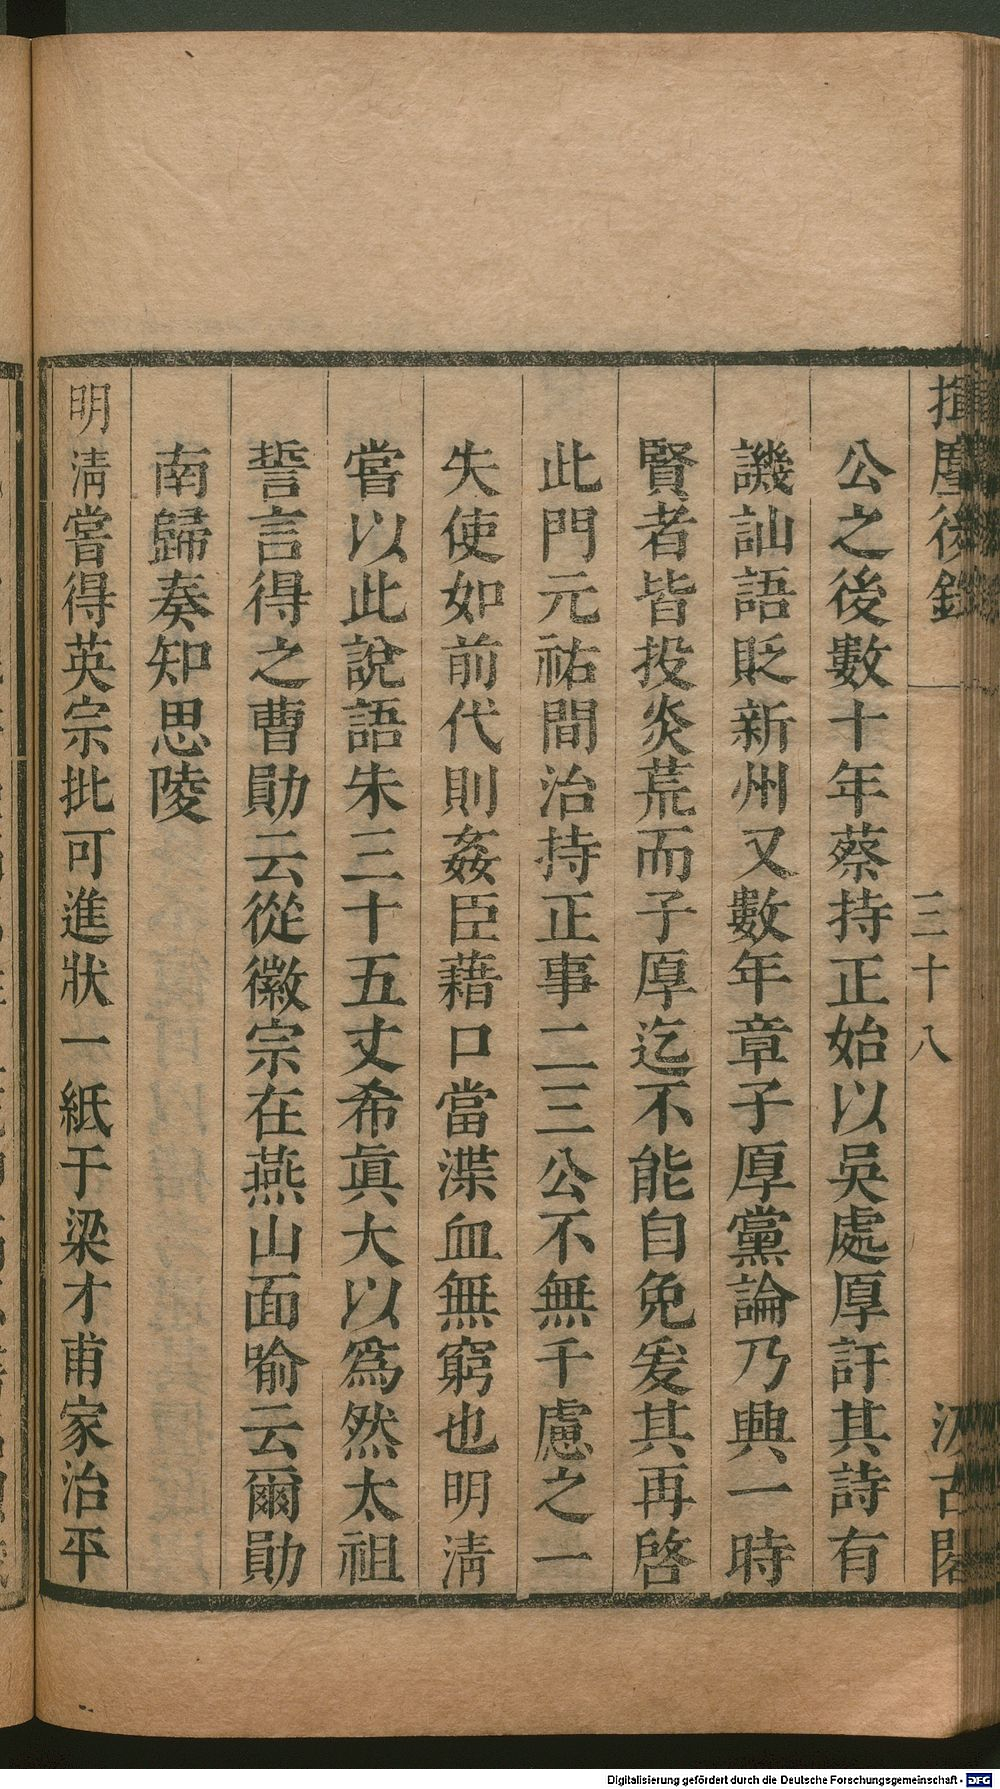 揮麈後錄
三十八
汲古閣
公之後數十年蔡持正始以吳處厚訐其詩有
譏訕語貶新州又數年章子厚黨論乃興一時
賢者皆投炎荒而子厚迄不能自免爰其再啓
此門元祐間治持正事二三公不無千慮之一
失使如前代則姦臣藉口當渫血無窮也明淸
嘗以此說語朱三十五丈希眞大以爲然太祖
誓言得之曹勛云從徽宗在燕山面喻云爾勛
南歸奏知思陵
明淸嘗得英宗批可進狀一紙于梁才甫家治平
Digitalisierung gefördert durch die Deutsche Forschungsgemeinschaft - DFG